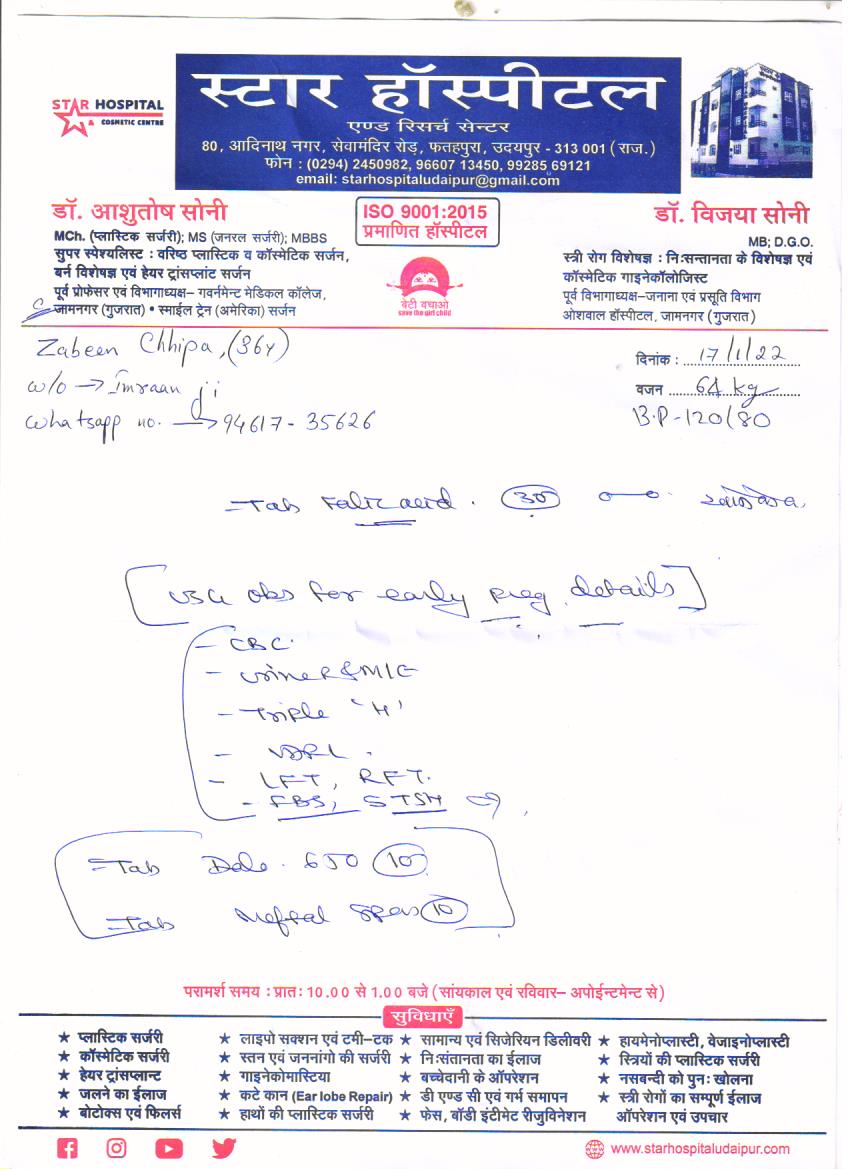 STAR HOSPITAL
& COSMETIC CENTRE
स्टार हॉस्पीटल
एण्ड रिसर्च सेन्टर
80, आदिनाथ नगर, सेवामंदिर रोड़, फतहपुरा, उदयपुर - 313 001 (राज.)
फोन : (0294) 2450982, 96607 13450, 99285 69121
email: starhospitaludaipur@gmail.com
डॉ. आशुतोष सोनी
MCh. (प्लास्टिक सर्जरी); MS (जनरल सर्जरी); MBBS
सुपर स्पेश्यलिस्ट : वरिष्ठ प्लास्टिक व कॉस्मेटिक सर्जन,
बर्न विशेषज्ञ एवं हेयर ट्रांसप्लांट सर्जन
पूर्व प्रोफेसर एवं विभागाध्यक्ष– गवर्नमेन्ट मेडिकल कॉलेज,
जामनगर (गुजरात) • स्माईल ट्रेन (अमेरिका) सर्जन
ISO 9001:2015
प्रमाणित हॉस्पीटल
बेटी बचाओ
save the girl child
डॉ. विजया सोनी
MB; D.G.O.
स्त्री रोग विशेषज्ञ : निःसन्तानता के विशेषज्ञ एवं
कॉस्मेटिक गाइनेकॉलोजिस्ट
पूर्व विभागाध्यक्ष-जनाना एवं प्रसूति विभाग
ओशवाल हॉस्पीटल, जामनगर (गुजरात)
Zabeen Chhipa, (36y)
w/o → Imraan ji
Whatsapp no. → 94617-35626
दिनांक : 17/1/22
वजन 64 kg
B.P-120/80
Tab Folic acid. 30
[USG obs for early preg. details]
- CBC
- Urine R & M/C
- Triple 'H'
- VDRL.
- LFT, RFT.
- FBS, STSH
Tab Dolo. 650 10
Tab Meftal Spas 10
परामर्श समय : प्रातः 10.00 से 1.00 बजे (सांयकाल एवं रविवार– अपोईन्टमेन्ट से)
सुविधाएँ
★ प्लास्टिक सर्जरी ★ लाइपो सक्शन एवं टमी–टक ★ सामान्य एवं सिजेरियन डिलीवरी ★ हायमेनोप्लास्टी, वेजाइनोप्लास्टी
★ कॉस्मेटिक सर्जरी ★ स्तन एवं जननांगो की सर्जरी ★ निःसंतानता का ईलाज ★ स्त्रियों की प्लास्टिक सर्जरी
★ हेयर ट्रांसप्लान्ट ★ गाइनेकोमास्टिया ★ बच्चेदानी के ऑपरेशन ★ नसबन्दी को पुनः खोलना
★ जलने का ईलाज ★ कटे कान (Ear lobe Repair) ★ डी एण्ड सी एवं गर्भ समापन ★ स्त्री रोगों का सम्पूर्ण ईलाज
★ बोटोक्स एवं फिलर्स ★ हाथों की प्लास्टिक सर्जरी ★ फेस, बॉडी इंटीमेट रीजुविनेशन ऑपरेशन एवं उपचार
www.starhospitaludaipur.com